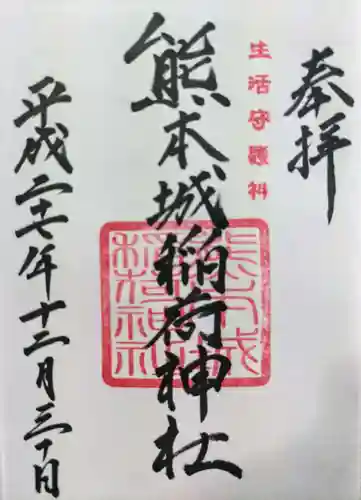 奉拝
生活守護神
熊本城稲荷神社
平成二十七年十二月三十日
熊本城
稲荷神社